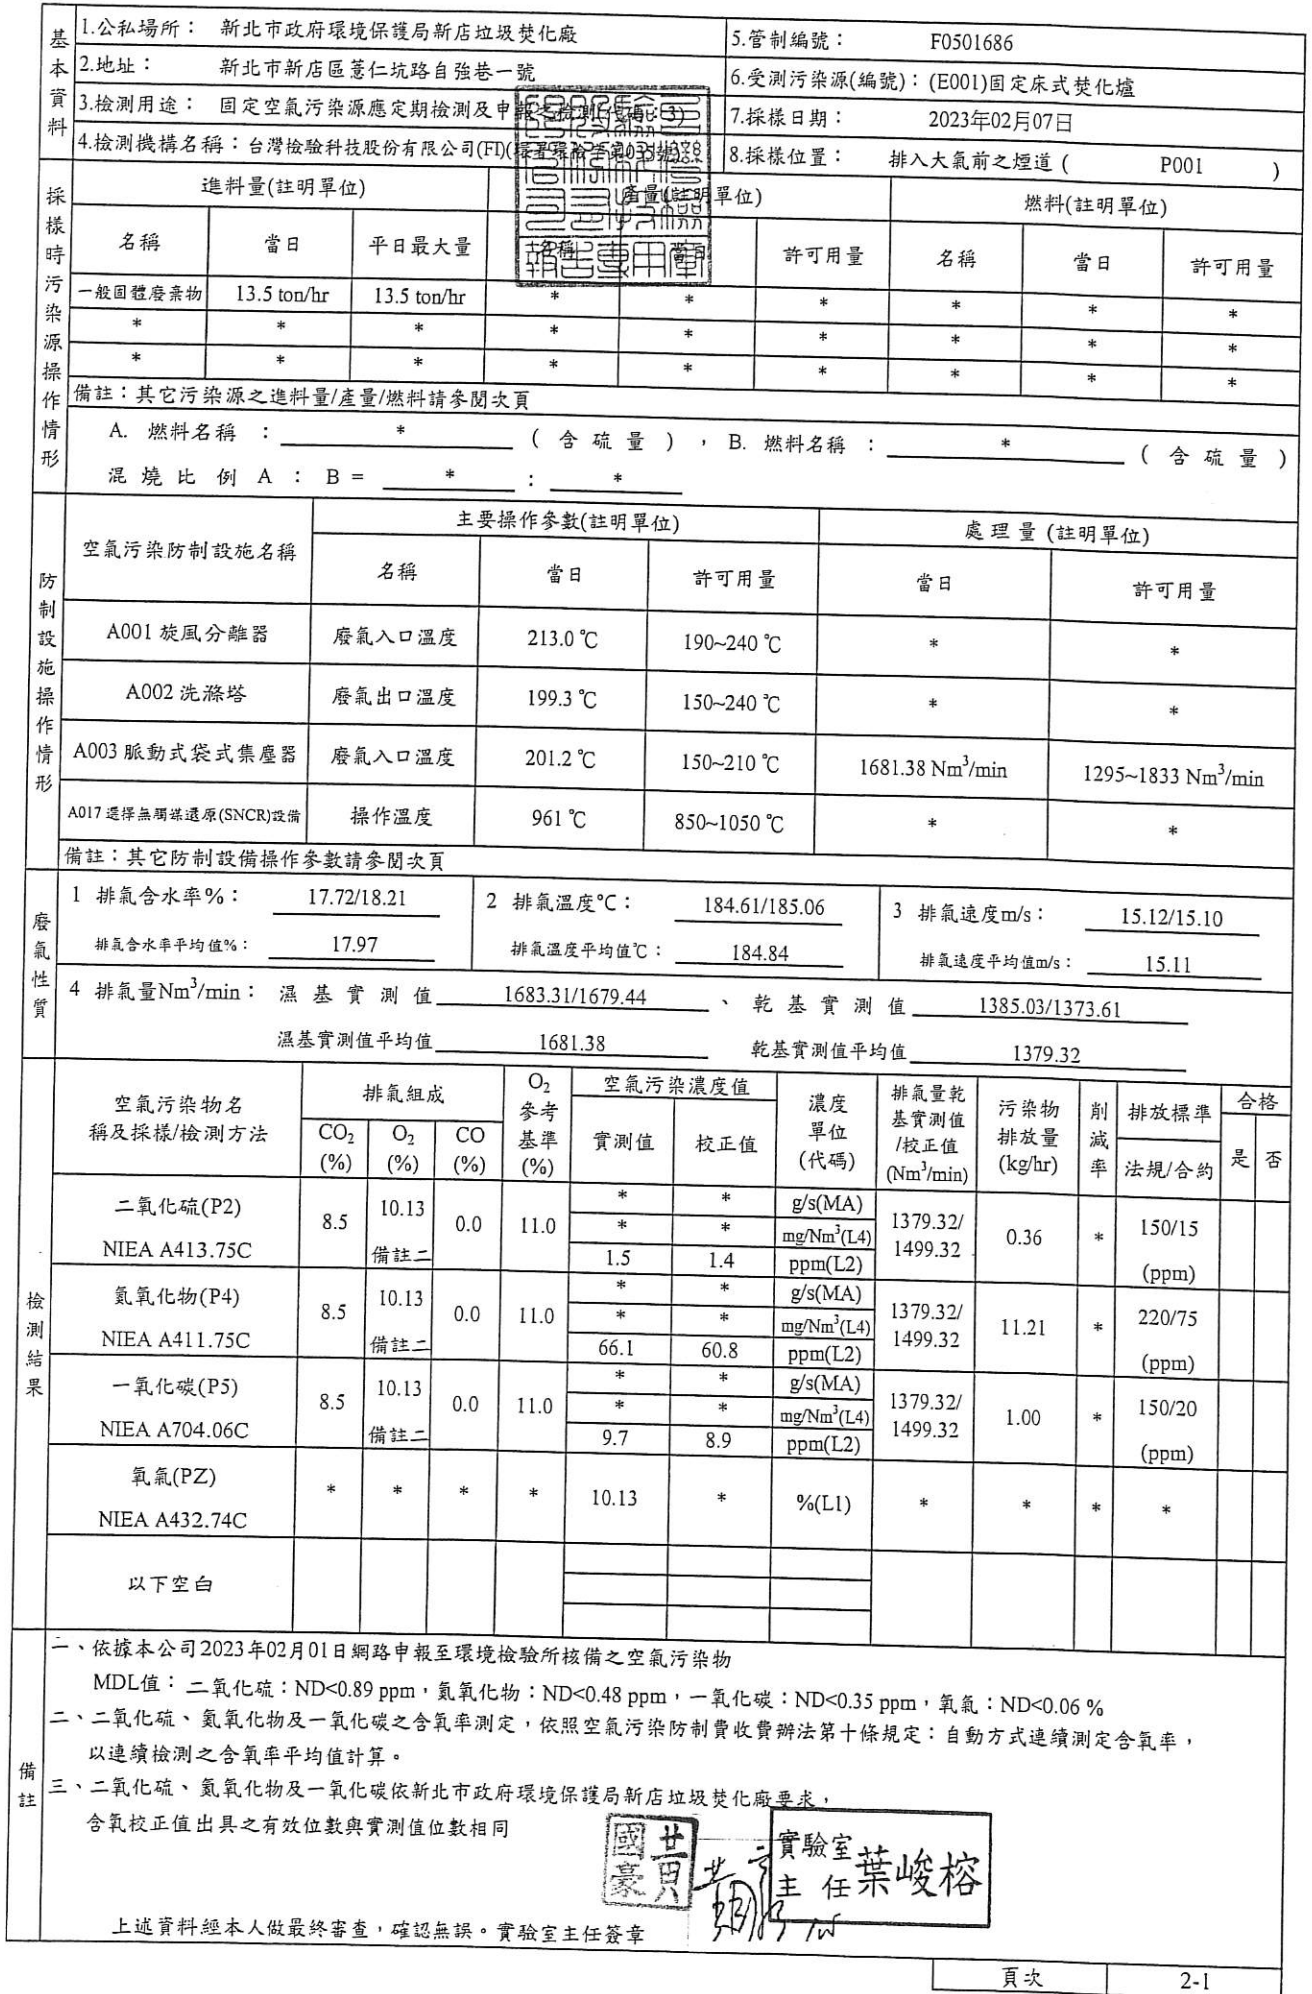 基本資料
1.公私場所： 新北市政府環境保護局新店垃圾焚化廠
5.管制編號： F0501686
2.地址： 新北市新店區薏仁坑路自強巷一號
6.受測污染源(編號)：(E001)固定床式焚化爐
3.檢測用途： 固定空氣污染源應定期檢測及申報之檢測(代碼：3)
7.採樣日期： 2023年02月07日
4.檢測機構名稱：台灣檢驗科技股份有限公司(FI)(環署環檢字第035號)
8.採樣位置： 排入大氣前之煙道 ( P001 )
採樣時污染源操作情形
進料量(註明單位) 產量(註明單位) 燃料(註明單位)
名稱 當日 平日最大量 名稱 當日 許可用量 名稱 當日 許可用量
一般固體廢棄物 13.5 ton/hr 13.5 ton/hr * * * * * *
* * * * * * * * *
* * * * * * * * *
備註：其它污染源之進料量/產量/燃料請參閱次頁
A. 燃料名稱 ： * ( 含 硫 量 ) ， B. 燃料名稱 ： * ( 含 硫 量 )
混 燒 比 例 A ： B = * ： *
防制設施操作情形
空氣污染防制設施名稱 主要操作參數(註明單位) 處 理 量 (註明單位)
名稱 當日 許可用量 當日 許可用量
A001 旋風分離器 廢氣入口溫度 213.0 ℃ 190~240 ℃ * *
A002 洗滌塔 廢氣出口溫度 199.3 ℃ 150~240 ℃ * *
A003 脈動式袋式集塵器 廢氣入口溫度 201.2 ℃ 150~210 ℃ 1681.38 Nm³/min 1295~1833 Nm³/min
A017 選擇無觸媒還原(SNCR)設備 操作溫度 961 ℃ 850~1050 ℃ * *
備註：其它防制設備操作參數請參閱次頁
廢氣性質
1 排氣含水率%： 17.72/18.21 2 排氣溫度℃： 184.61/185.06 3 排氣速度m/s： 15.12/15.10
排氣含水率平均值%： 17.97 排氣溫度平均值℃： 184.84 排氣速度平均值m/s： 15.11
4 排氣量Nm³/min： 濕 基 實 測 值 1683.31/1679.44 、 乾 基 實 測 值 1385.03/1373.61
濕基實測值平均值 1681.38 乾基實測值平均值 1379.32
檢測結果
空氣污染物名稱及採樣/檢測方法 排氣組成 O₂參考基準(%) 空氣污染濃度值 濃度單位(代碼) 排氣量乾基實測值/校正值(Nm³/min) 污染物排放量(kg/hr) 削減率 排放標準 合格
CO₂(%) O₂(%) CO(%) 實測值 校正值 法規/合約 是 否
二氧化硫(P2) NIEA A413.75C 8.5 10.13 備註二 0.0 11.0 * * g/s(MA) 1379.32/1499.32 0.36 * 150/15 (ppm)
* * mg/Nm³(L4)
1.5 1.4 ppm(L2)
氮氧化物(P4) NIEA A411.75C 8.5 10.13 備註二 0.0 11.0 * * g/s(MA) 1379.32/1499.32 11.21 * 220/75 (ppm)
* * mg/Nm³(L4)
66.1 60.8 ppm(L2)
一氧化碳(P5) NIEA A704.06C 8.5 10.13 備註二 0.0 11.0 * * g/s(MA) 1379.32/1499.32 1.00 * 150/20 (ppm)
* * mg/Nm³(L4)
9.7 8.9 ppm(L2)
氧氣(PZ) NIEA A432.74C * * * * 10.13 * %(L1) * * * *
以下空白
備註
一、依據本公司2023年02月01日網路申報至環境檢驗所核備之空氣污染物
MDL值： 二氧化硫：ND<0.89 ppm，氮氧化物：ND<0.48 ppm，一氧化碳：ND<0.35 ppm，氧氣：ND<0.06 %
二、二氧化硫、氮氧化物及一氧化碳之含氧率測定，依照空氣污染防制費收費辦法第十條規定：自動方式連續測定含氧率，
以連續檢測之含氧率平均值計算。
三、二氧化硫、氮氧化物及一氧化碳依新北市政府環境保護局新店垃圾焚化廠要求，
含氧校正值出具之有效位數與實測值位數相同
黃國豪
實驗室主任 葉峻榕
上述資料經本人做最終審查，確認無誤。實驗室主任簽章
頁次 2-1